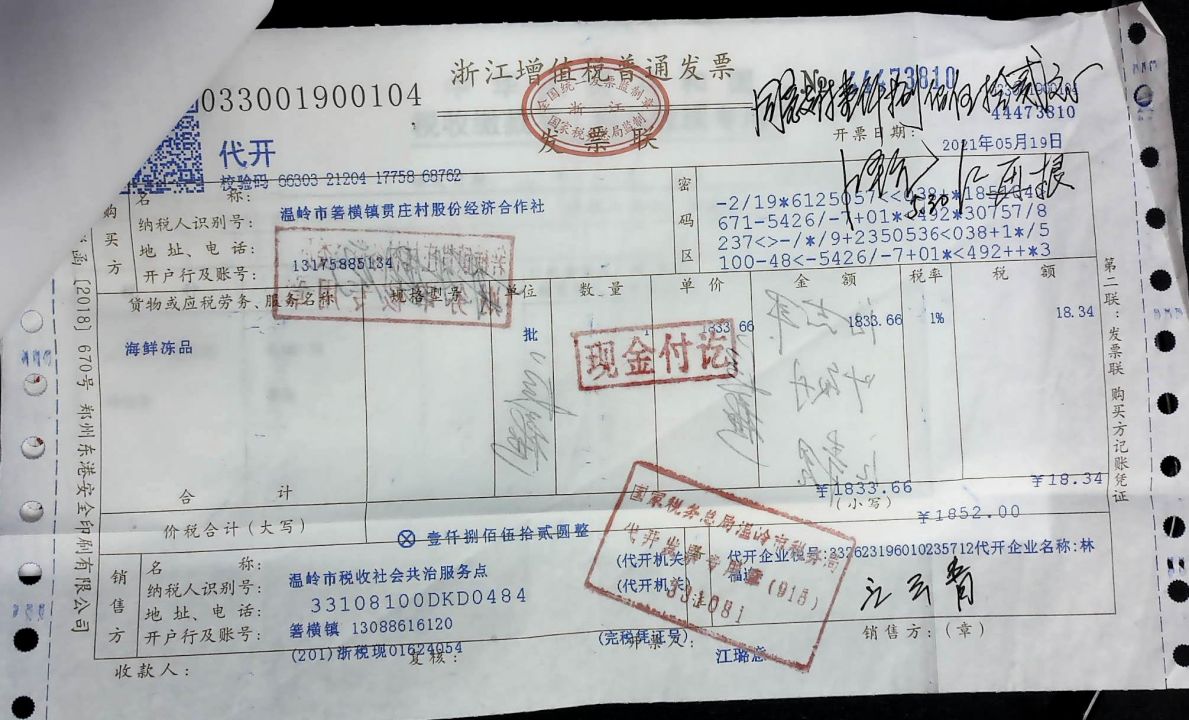 浙江增值税普通发票
033001900104
No 44473810
全国统一发票监制章
浙江
国家税务总局监制
发票联
44473810
代开
开票日期: 2021年05月19日
校验码 66303 21204 17758 68762
购买方
名 称: 温岭市箬横镇贯庄村股份经济合作社
纳税人识别号:
地址、电话: 13175885134
开户行及账号:
密码区
671-5426/-7+01*<492*30757/8
237<>-/*/9+2350536<038+1*/5
100-48<-5426/-7+01*<492++*3
5.30
货物或应税劳务、服务名称 规格型号 单位 数量 单价 金额 税率 税额
海鲜冻品 批 1 1833.66 1833.66 1% 18.34
现金付讫
合计 ¥1833.66 ¥18.34
价税合计(大写) ⊗ 壹仟捌佰伍拾贰圆整 (小写) ¥1852.00
销售方
名 称: 温岭市税收社会共治服务点
纳税人识别号: 33108100DKD0484
地址、电话: 箬横镇 13088616120
开户行及账号: (201)浙税现01624054
(代开机关) 代开企业税号:332623196010235712代开企业名称:林
(代开机关)
(完税凭证号)
国家税务总局温岭市税务局
代开发票专用章(918)
331081
江云青
收款人: 复核: 开票人: 销售方:(章)
第二联:发票联 购买方记账凭证
函[2018]670号 郑州东港安全印刷有限公司